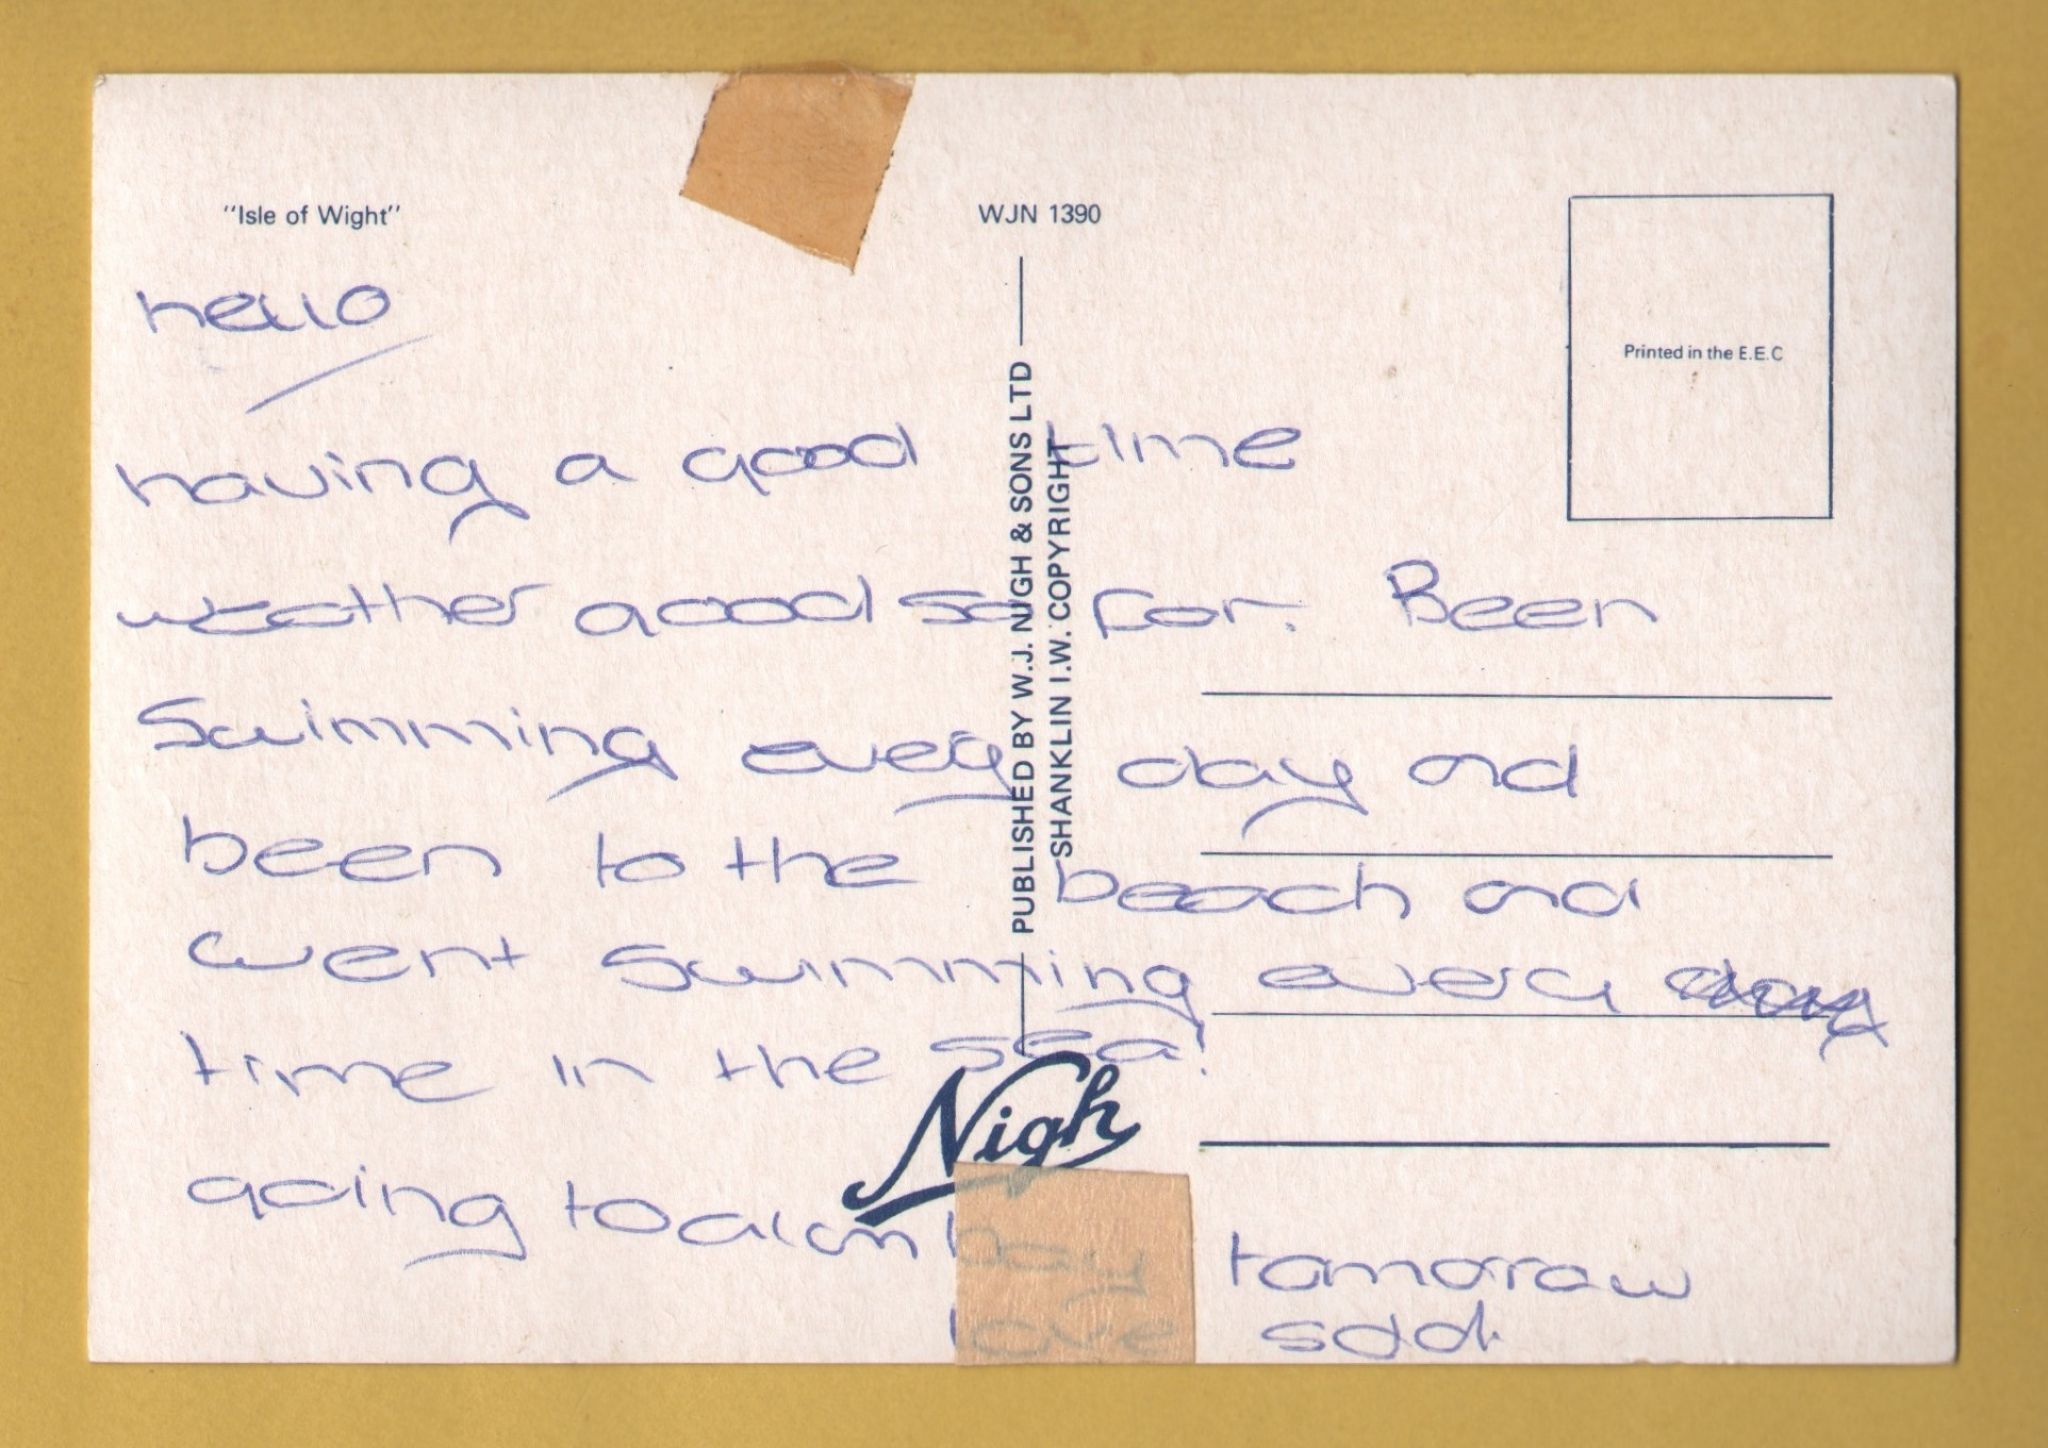 "Isle of Wight"
WJN 1390
Printed in the E.E.C
PUBLISHED BY W.J. NIGH & SONS LTD
SHANKLIN I.W. COPYRIGHT
Nigh
hello
having a good time
weather good so far. Been
Swimming every day and
been to the beach and
went swimming every
time in the sea!
going to alum bay tomorrow
love